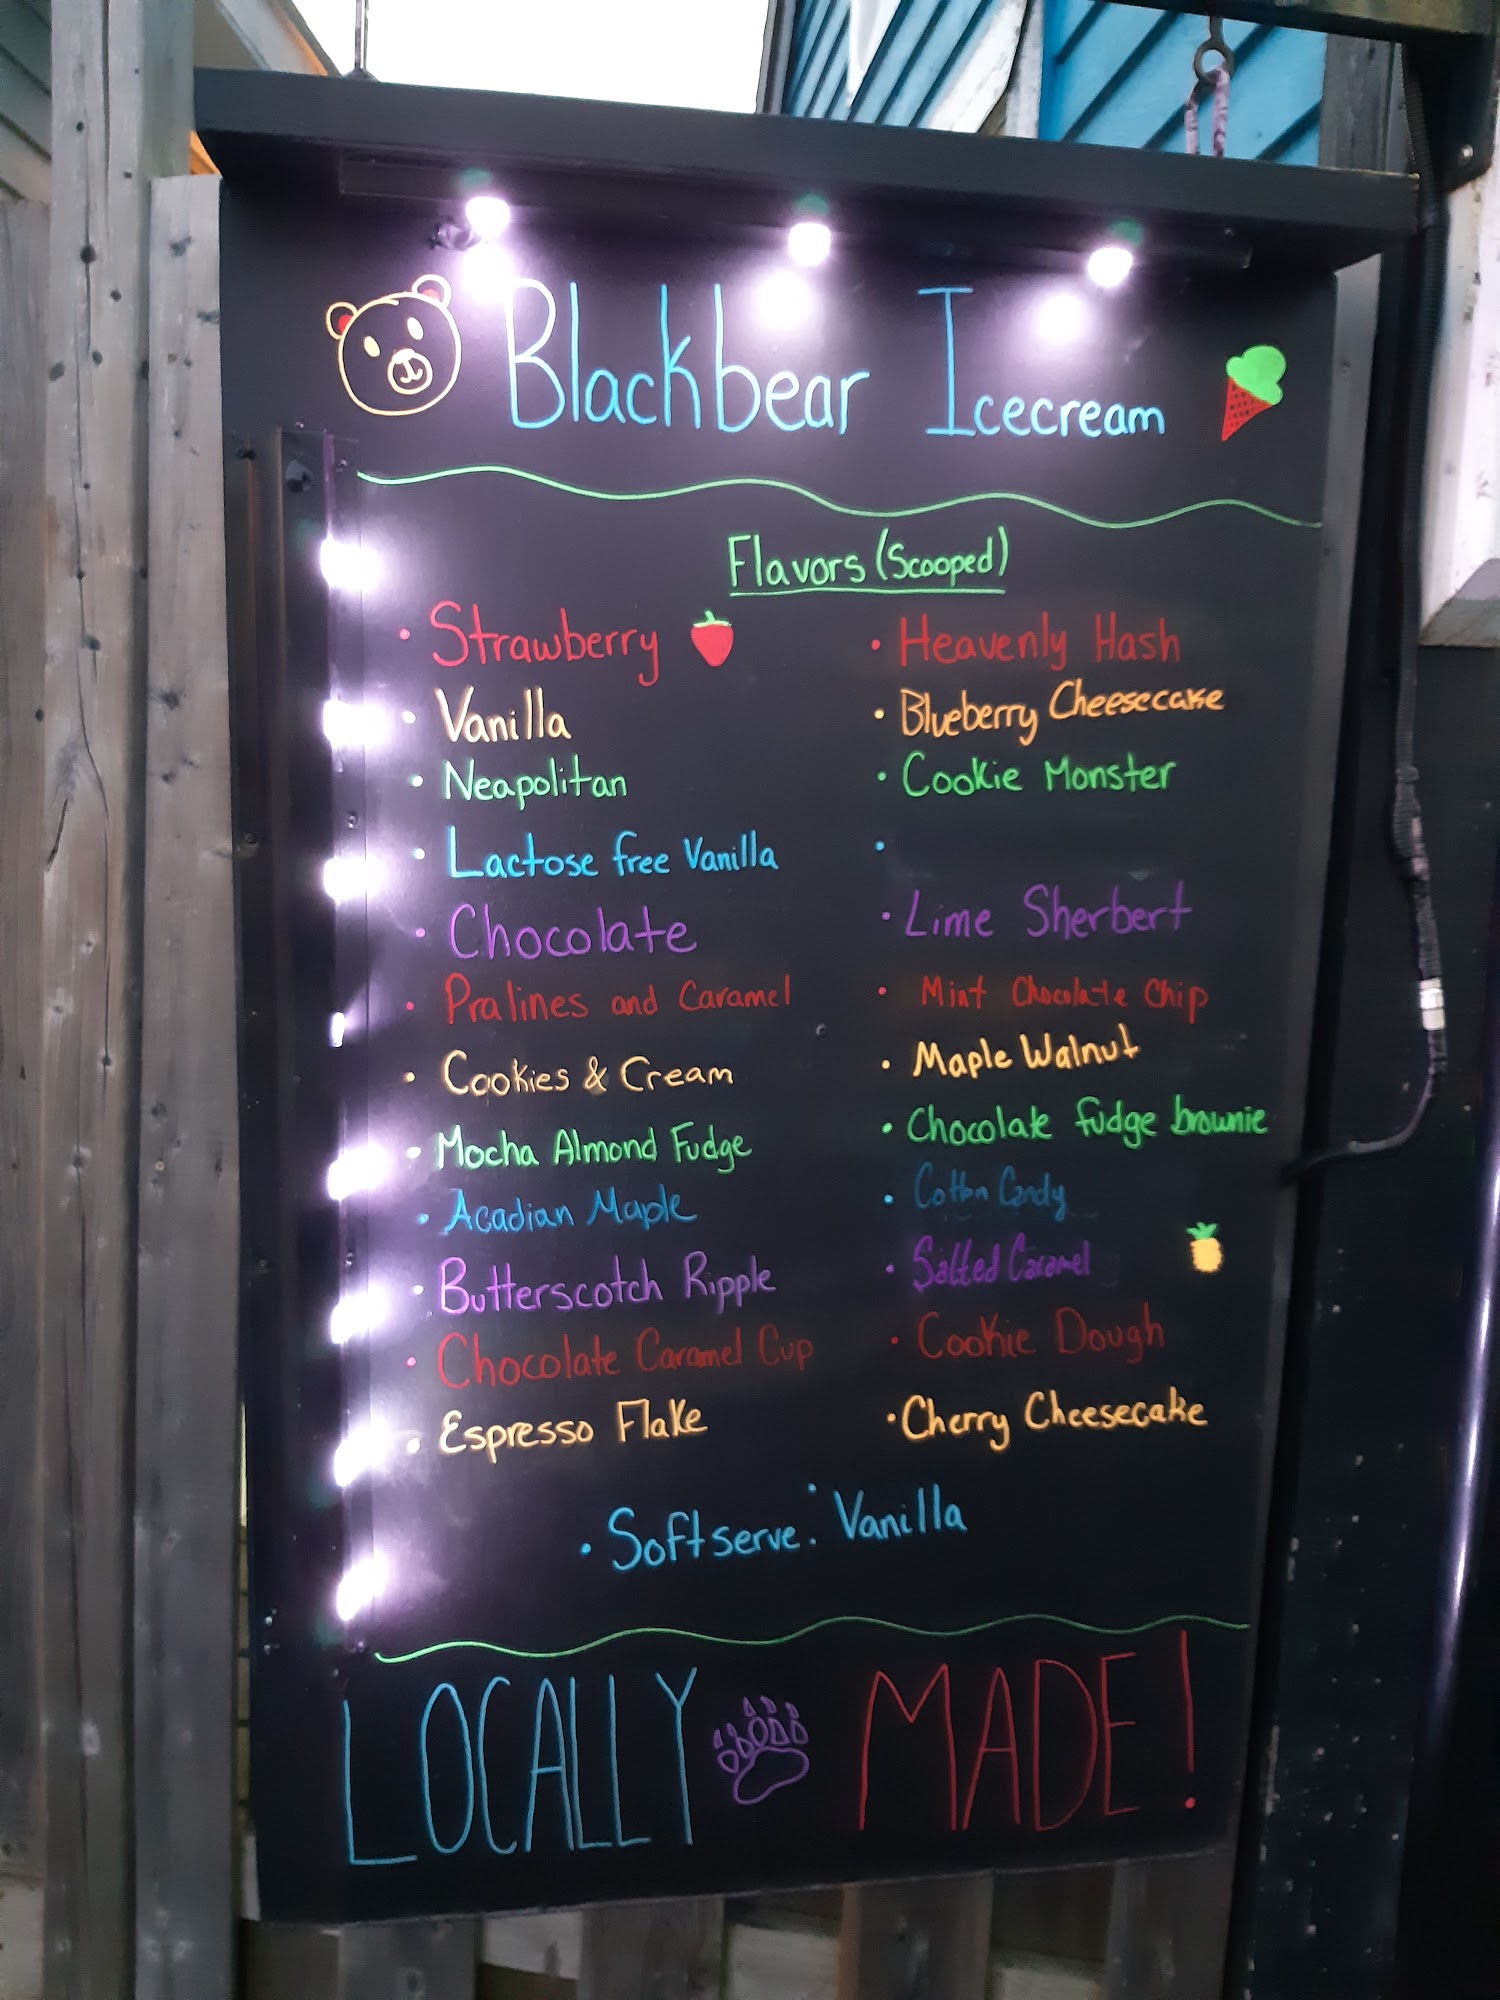 Blackbear Icecream
Flavors (Scooped)
• Strawberry
• Vanilla
• Neapolitan
• Lactose free Vanilla
• Chocolate
• Pralines and Caramel
• Cookies & Cream
• Mocha Almond Fudge
• Acadian Maple
• Butterscotch Ripple
• Chocolate Caramel Cup
• Espresso Flake
• Heavenly Hash
• Blueberry Cheesecake
• Cookie Monster
•
• Lime Sherbert
• Mint Chocolate Chip
• Maple Walnut
• Chocolate fudge brownie
• Cotton Candy
• Salted Caramel
• Cookie Dough
• Cherry Cheesecake
• Softserve: Vanilla
LOCALLY MADE!